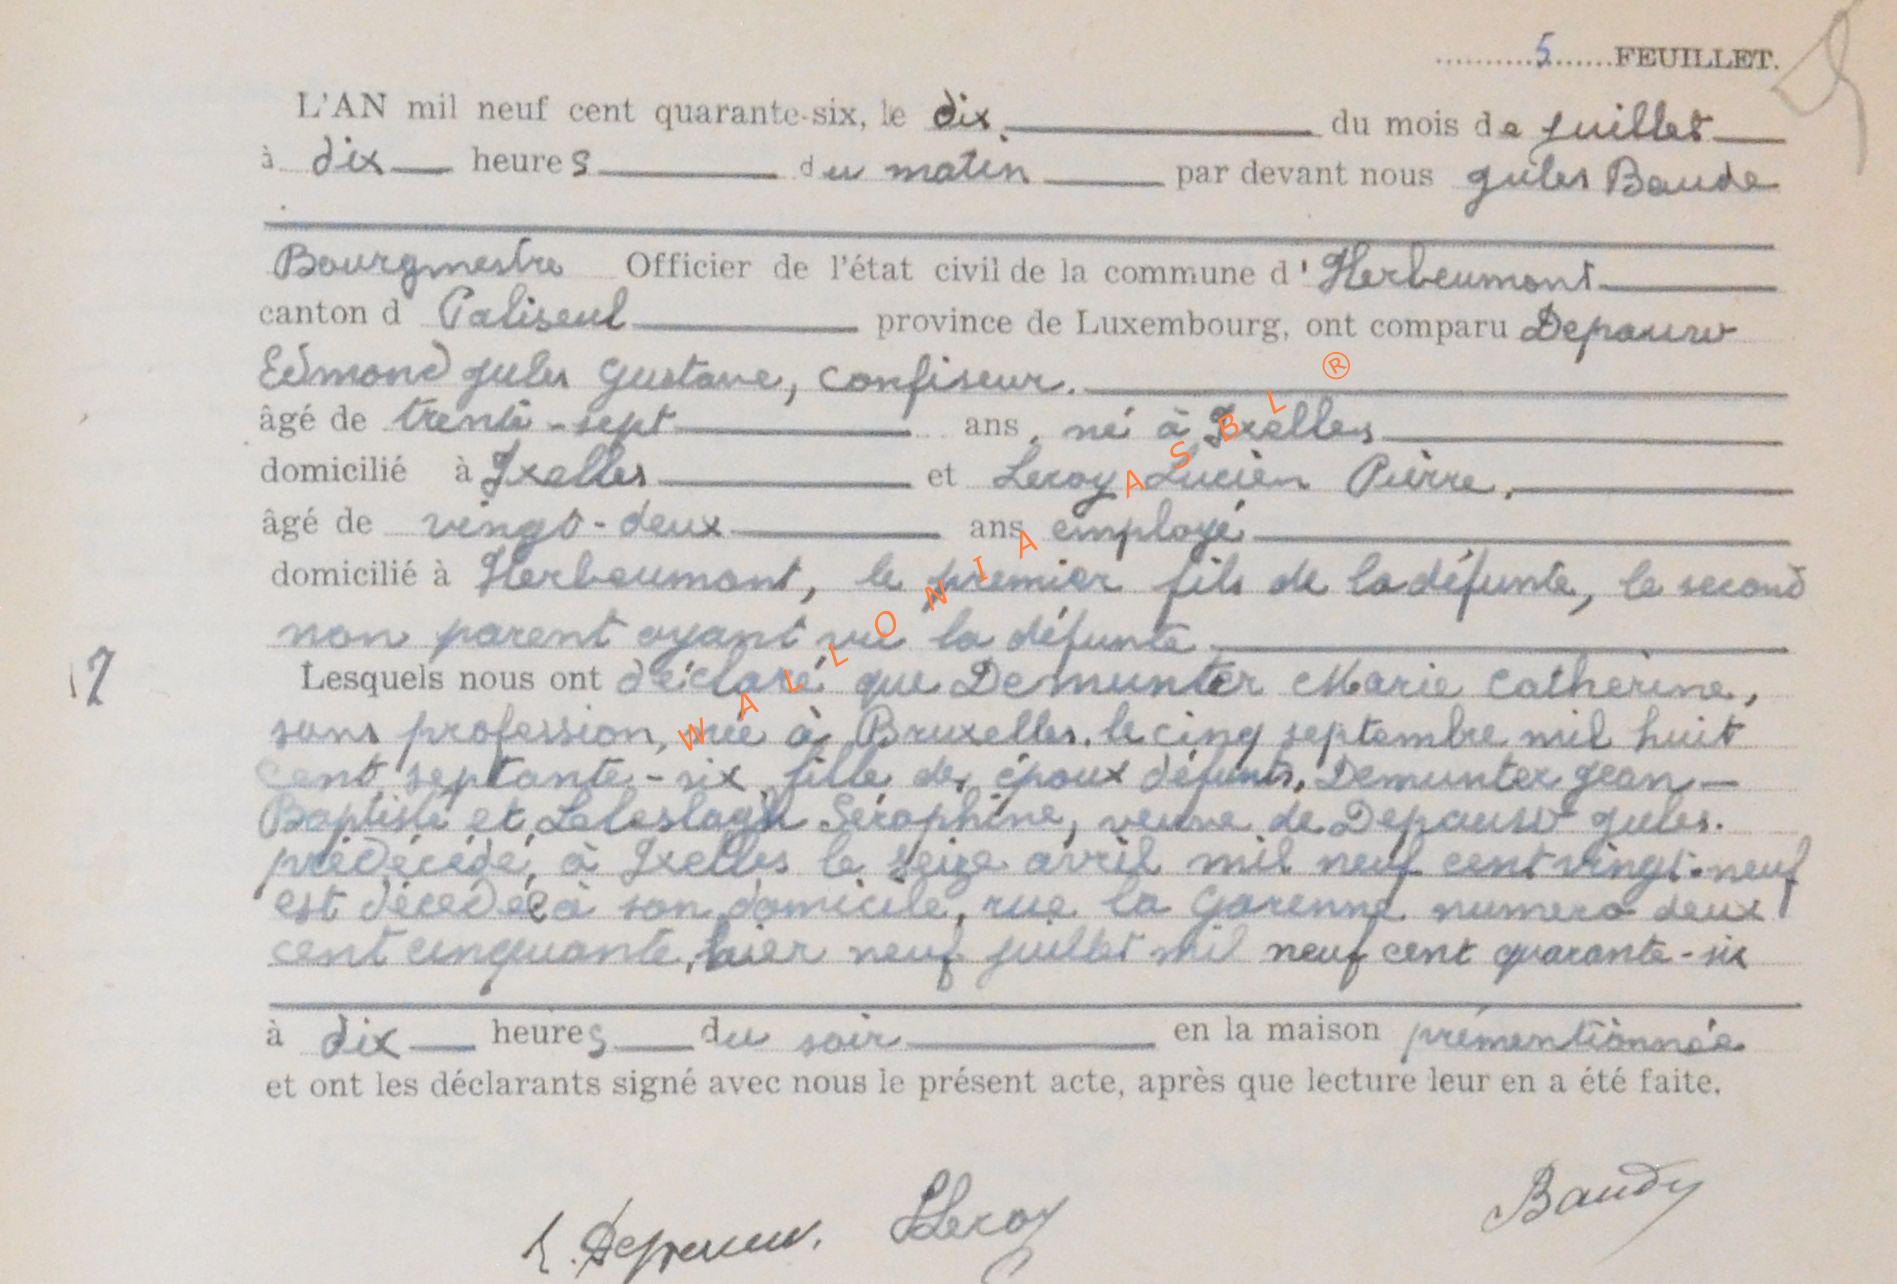 5 FEUILLET.
L'AN mil neuf cent quarante-six, le dix du mois de juillet
à dix heures du matin par devant nous Jules Baude
Bourgmestre Officier de l'état civil de la commune d'Herbeumont
canton d Paliseul province de Luxembourg, ont comparu Depauw
Edmond Jules Gustave, confiseur.
âgé de trente-sept ans, né à Ixelles
domicilié à Ixelles et Leroy Lucien Pierre,
âgé de vingt-deux ans employé
domicilié à Herbeumont, le premier fils de la défunte, le second
non parent ayant vu la défunte
17
Lesquels nous ont déclaré que Demunter Marie Catherine,
sans profession, née à Bruxelles, le cinq septembre mil huit
cent septante-six, fille des époux défunts, Demunter Jean-
Baptiste et Séraphine, veuve de Depauw Jules.
prédécédé, à Ixelles le seize avril mil neuf cent vingt-neuf
est décédée à son domicile, rue la Garenne numero deux
cent cinquante, hier neuf juillet mil neuf cent quarante-six
à dix heures du soir en la maison prémentionnée
et ont les déclarants signé avec nous le présent acte, après que lecture leur en a été faite.
E. Depauw. LLeroy Baude
WALLONIA ASBL ®